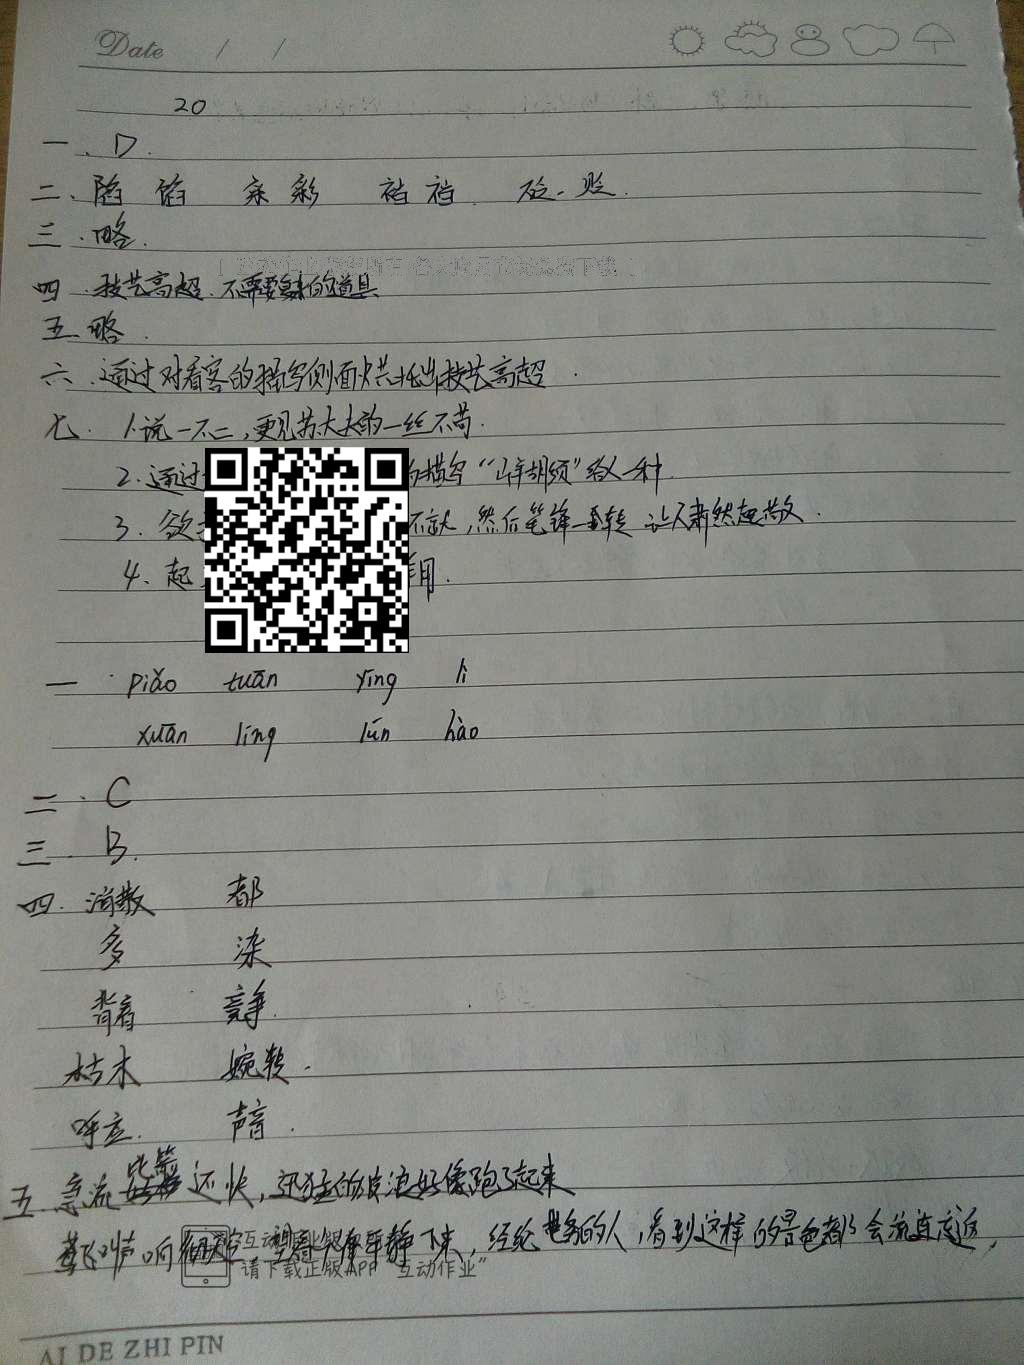 Date / /
20
一、D.
二、陷 馅 亲 彩 裆 裆 砭、贬.
三、略.
四、技艺高超、不需要的道具
五、略.
六、通过对看客的描写侧面烘托出技艺高超.
七、1.说一不二,更见苏大夫的一丝不苟.
2.通过 描写"山羊胡须"给人一种
3、欲 然后笔锋一转 让人肃然起敬.
4、起 作用.
一、piǎo tuān yīng lì
xuān líng lún hào
二、C
三、B.
四、消散 都
多 染
背着 竞争.
枯木 婉转.
呼应. 声音.
五、急流比箭还快,迅猛的波浪好像跑了起来
鸢飞叫声响彻天空 下来,经纶世务的人,看到这样的景色都会流连忘返,
互动作业
请下载正版APP"互动作业"
AI DE ZHI PIN